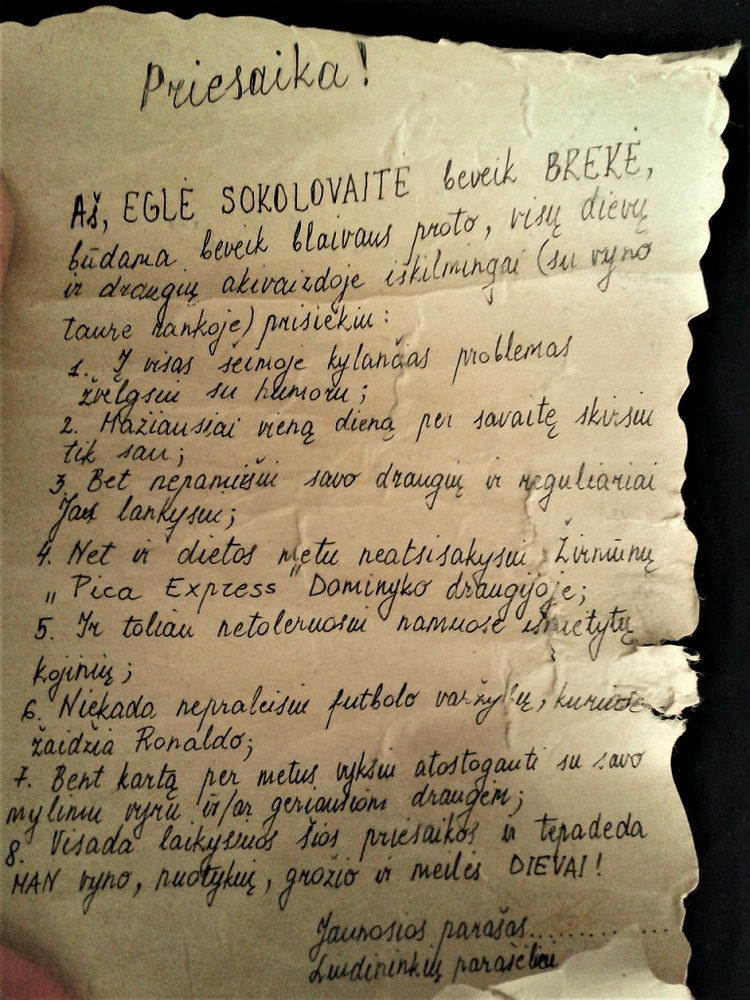 Priesaika!
Aš, EGLĖ SOKOLOVAITĖ beveik BREKĖ,
būdama beveik blaivaus proto, visų dievų
ir draugių akivaizdoje iškilmingai (su vyno
taure rankoje) prisiekiu:
1. Į visas šeimoje kylančas problemas
žvelgsiu su humoru;
2. Mažiausiai vieną dieną per savaitę skirsiu
tik sau;
3. Bet nepamišiu savo draugių ir reguliariai
Jas lankysiu;
4. Net ir dietos metu neatsisakysiu Žirmūnų
„Pica Express" Dominyko draugijoje;
5. Ir toliau netoleruosiu namuose išmėtytų
kojinių;
6. Niekada nepraleisiu futbolo varžybų, kuriose
žaidžia Ronaldo;
7. Bent kartą per metus vyksiu atostogauti su savo
mylimu vyru ir/ar geriausiom draugėm;
8. Visada laikysiuos šios priesaikos ir tepadeda
MAN vyno, nuotykių, grožio ir meilės DIEVAI!
Jaunosios parašas............
Liudininkių parašėliai